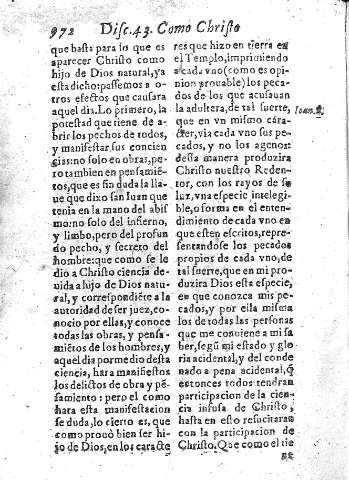 972 Disc.43. Como Christo
que basta para lo que es
aparecer Christo como
hijo de Dios natural, ya
esta dicho: passemos a o-
tros efectos que causara
aquel dia. Lo primero, la
potestad que tiene de a-
brir los pechos de todos,
y manifestar sus concien
cias: no solo en obras, pe-
ro tambien en pensamiẽ-
tos, que es sin duda la lla-
ue que dixo san Iuan que
tenia en la mano del abis
mo: no solo del infierno,
y limbo, pero del profun
do pecho, y secreto del
hombre: que como se le
dio a Christo ciencia de-
uida a hijo de Dios natu-
ral, y correspondiẽte a la
autoridad de ser juez, co-
nocio por ellas, y conoce
todas las obras, y pensa-
miẽtos de los hombres, y
aquel dia por medio desta
ciencia, hara manifiestos
los delictos de obra y pẽ-
samiento: pero el como
hara esta manifestacion
se duda, lo cierto es, que
como prouò bien ser hi-
jo de Dios, en los caracte
res que hizo en tierra en
el Templo, imprimiendo
a cada vno (como es opi-
nion prouable) los peca-
dos de los que acusauan
la adultera, de tal suerte,
Ioan.8.
que en vn mismo cara-
cter, via cada vno sus pe-
cados, y no los agenos:
desta manera produzira
Christo nuestro Reden-
tor, con los rayos de su
luz, vna especie intelegi-
ble, o forma en el enten-
dimiento de cada vno en
que esten escritos, repre-
sentandose los pecados
propios de cada vno, de
tal suerte, que en mi pro-
duzira Dios esta especie,
en que conozca mis pe-
cados, y por ella misma
los de todas las personas
que me conuiene a mi sa
ber, segũ mi estado y glo
ria acidental, y del conde
nado a pena acidental, q̃
entonces todos tendran
participacion de la cien-
cia infusa de Christo,
hasta en esto resucitaran
con la participacion de
Christo. Que como el tie
ne